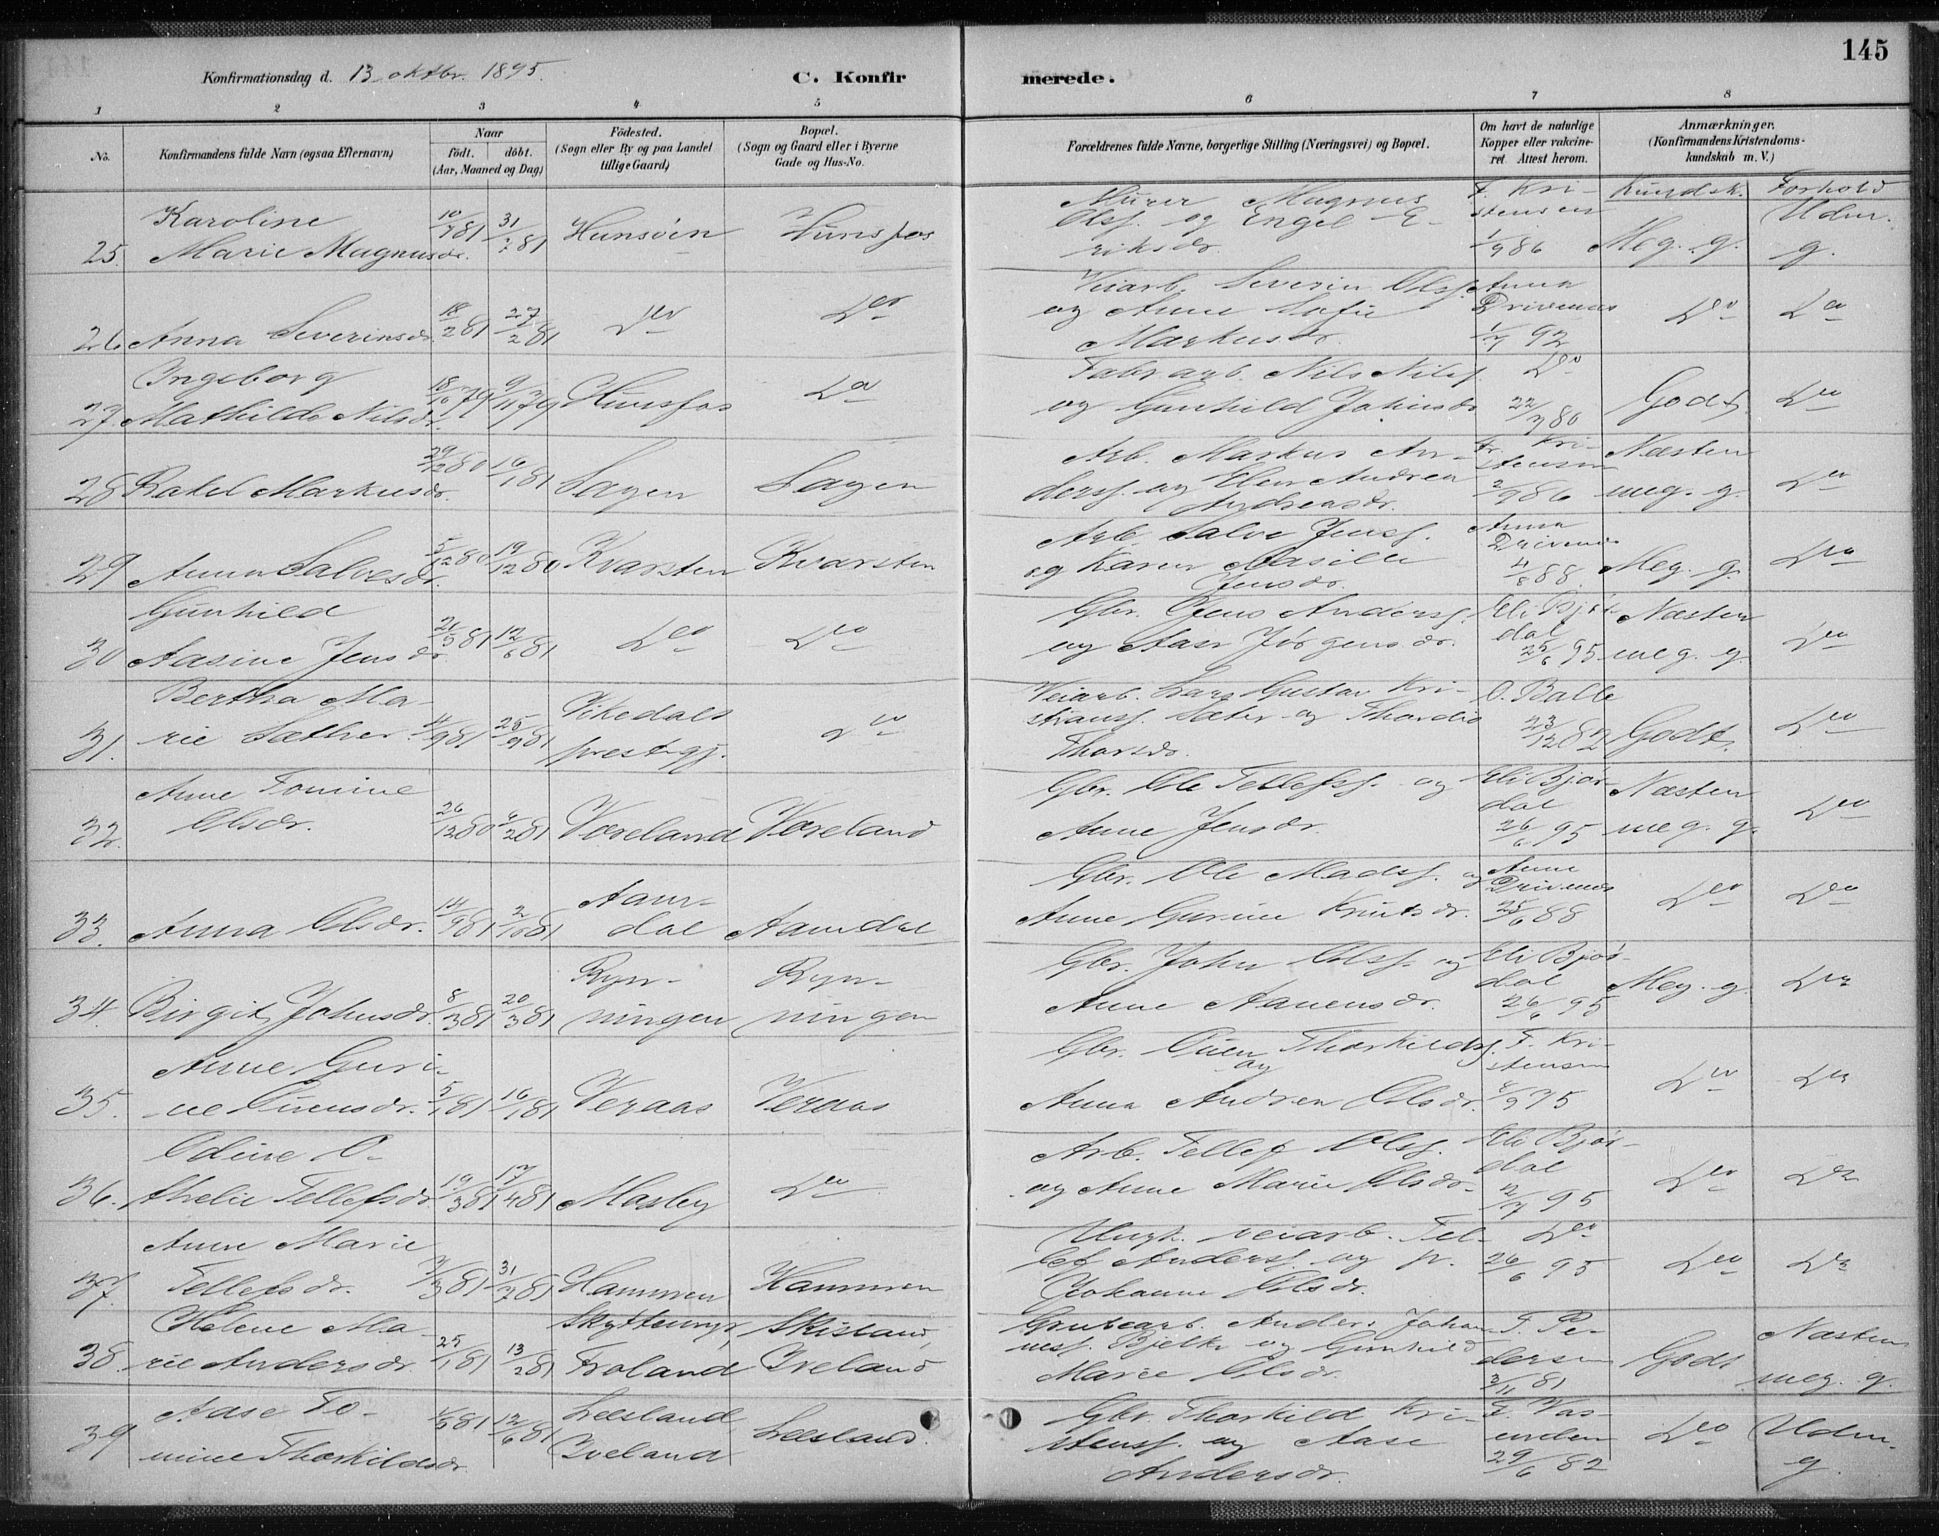 145
Konfirmationsdag d. 13 oktbr. 1895.
C. Konfirmerede.
1 2 3 4 5 6 7 8
No.
Konfirmandens fulde Navn (ogsaa Efternavn)
Naar
födt. döbt.
(Aar, Maaned og Dag)
Födested.
(Sogn eller By og paa Landet
tillige Gaard)
Bopæl.
(Sogn og Gaard eller i Byerne
Gade og Hus-No.
Forældrenes fulde Navne, borgerlige Stilling (Næringsvei) og Bopæl.
Om havt de naturlige
Kopper eller vakcine-
ret. Attest herom.
Anmærkninger.
(Konfirmandens Kristendoms-
kundskab m. V.)
Kundsk. Forhold
25. Karoline
Marie Magnusdr. 31/7 81 Hunsöen Hunsfos
Murer Magnus
Olsf. og Engel E-
riksdr.
F. Kri-
stensen
1/9 86
Meg. g.
Udm.
g.
26 Anna Severinsdr. 18/2 81 27/2 81 Do Do
Veiarb. Severin Olsf.
og Anne Sofie
Markusdr.
Anna
Drivenes
1/7 92
Do Do
27 Ingeborg
Mathilde Nilsdr. 18/10 79 9/11 79 Hunsfos Do
Fabrarb. Nils Nilsf.
og Gunhild Johnsdr
Do
22/7 80
Godt. Do
28 Rakel Markusdr. 29/12 80 16/1 81 Sagen Sagen
Arb. Markus An-
dersf. og Elen Andrea
Andreasdr.
Fr. Kri-
stensen
2/9 86
Næsten
meg. g. Do
29 Anna Salvesdr. 5/12 80 19/12 80 Kvarsten Kvarsten
Arb. Salve Jensf.
og Karen Assille
Jensdr.
Anna
Drivenes
4/8 88
Meg. g. Do
30 Gunhild
Aasine Jensdr. 21/5 81 12/6 81 Do Do
Gbr. Jens Andersf.
og Aase Jörgensdr.
Eli Björ-
dal
26/6 95
Næsten
meg. g. Do
31. Bertha Ma-
rie Sæther 4/9 81 25/9 81 Vikedals
prestegj. Do
Veiarb. Lars Gustav Kri-
stiansf. Sæter og Thordis
Thorsdr.
O. Balle
23/12 82
Godt. Do
32. Anne Tomine
Olsdr. 26/12 80 6/2 81 Voreland Voreland
Gbr. Ole Tellefsf. og
Anne Jensdr
Eli Björ-
dal
26/6 95
Næsten
meg. g. Do
33. Anna Olsdr. 14/9 81 2/10 81 Aam-
dal Aamdal
Gbr. Ole Madsf. og
Anne Gurine Knutsdr.
Anne
Drivenes
25/6 88
Do Do
34. Birgit Johnsdr. 8/3 81 20/3 81 Ryn-
ningen Ryn-
ningen
Gbr. John Olsf. og
Anne Aanensdr.
Eli Björ-
dal
26/6 95
Meg. g. Do
35. Anne Guri-
ne Ouensdr. 5/1 81 16/1 81 Veraas Veraas
Gbr. Ouen Thorkildsf.
og
Anna Andrea Olsdr.
F. Kri-
stensen
Do Do
36. Odine O-
thelie Tellefsdr. 19/3 81 17/4 81 Mosby Do
Arb. Tellef Olsf.
og Anne Marie Olsdr.
Eli Björ-
dal
12/7 95
Do Do
37. Anne Marie
Tellefsdr. 31/7 81 Hammen Hammen
Ungk. veiarb. Tel-
lef Andersf. og p.
Johanne Olsdr.
Do
26/6 95
Do Do
38. Helene Ma-
rie Andersdr 25/1 81 13/2 81 Skyttemyr,
Froland Skisland,
Iveland
Grubearb. Anders Johan-
nesf. Bjelke og Gunhild
Marie Olsdr.
T. Pe-
dersen
3/11 81
Godt
Næsten
meg. g.
39 Aase To-
mine Thorkildsdr. 12/6 81 Leesland
Iveland Leesland.
Gbr. Thorkild Kri-
stensf. og Aase
Andersdr.
29/6 82
Do Udm.
g.